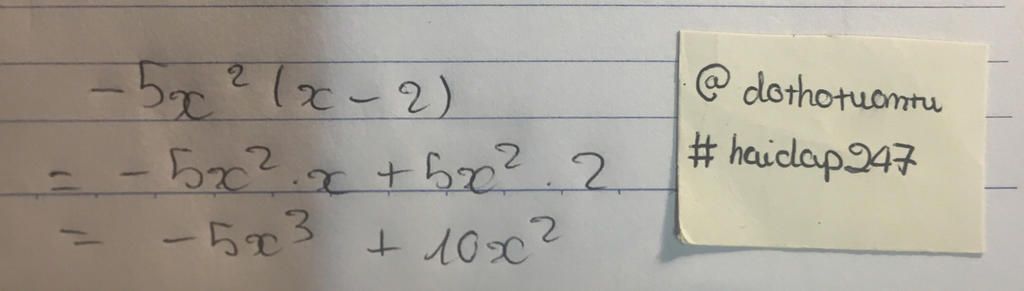 -5x²(x-2)
= -5x².x + 5x².2
= -5x³ + 10x²
@ dothotuantu
# haidap247